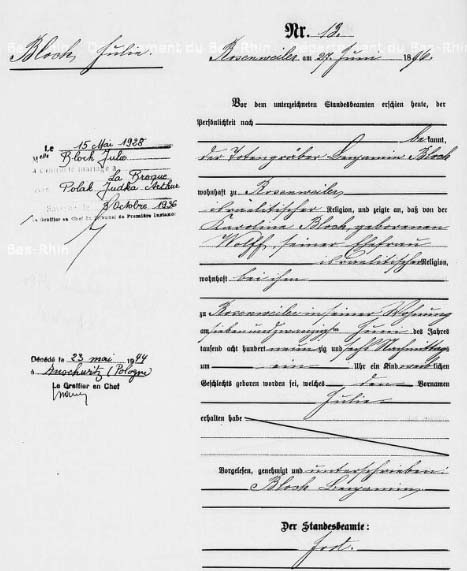 Nr. 13.
Bloch Julie.
Rosenweiler am 27. Juni 1896.
Vor dem unterzeichneten Standesbeamten erschien heute, der
Persönlichkeit nach
be kannt,
der Totengräber Benjamin Bloch
wohnhaft zu Rosenweiler
israelitischer Religion, und zeigte an, daß von der
Karolina Bloch geborenen
Wolff, seiner Ehefrau
israelitischer Religion,
wohnhaft bei ihm
zu Rosenweiler in seiner Wohnung
am siebenundzwanzigsten Juni des Jahres
tausend acht hundert neunzig und sechs Nachmittags
um ein Uhr ein Kind weiblichen
Geschlechts geboren worden sei, welches den Vornamen
Julie
erhalten habe
Vorgelesen, genehmigt und unterschrieben:
Bloch Benjamin
Der Standesbeamte:
Jost.
Le 15 Mai 1928
Melle Bloch Julie
a contracté mariage à La Broque
avec Polak Judka Arthur
Saverne 8 Octobre 1936
Le Greffier en Chef du Tribunal de Première Instance
Décédé le 23 mai 1944
à Auschwitz (Pologne)
Le Greffier en Chef